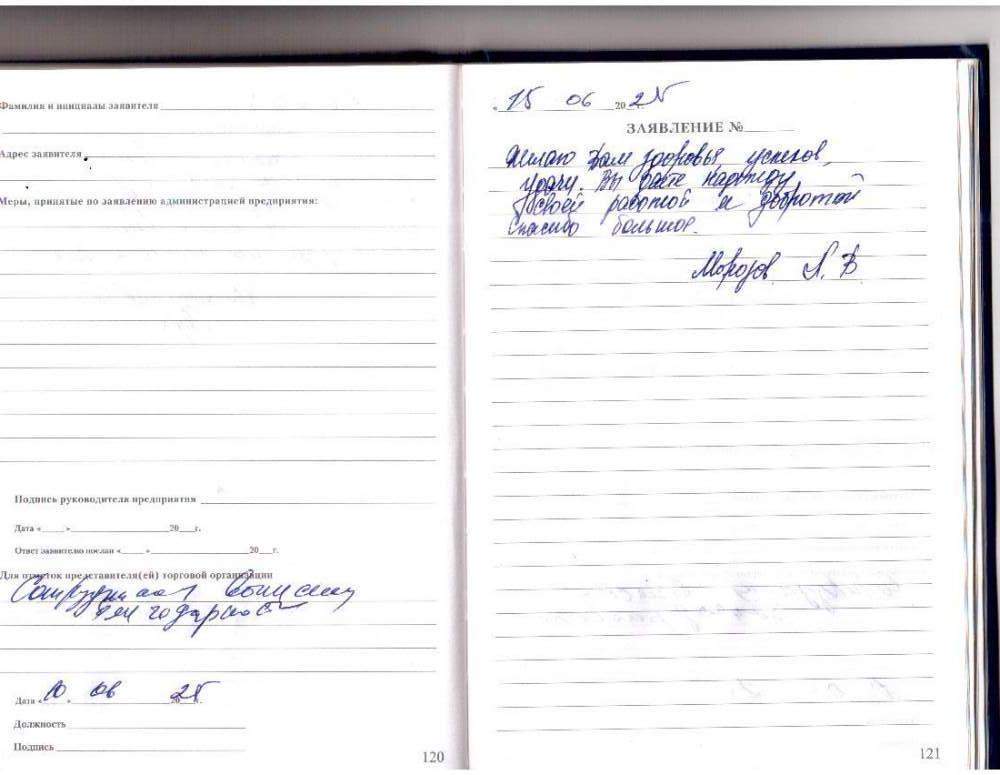 Фамилия и инициалы заявителя
Адрес заявителя
Меры, принятые по заявлению администрацией предприятия:
Подпись руководителя предприятия
Дата «____»____________20___г.
Ответ заявителю послан «____»____________20___г.
Для отметок представителя(ей) торговой организации
Сотрудникам
благодарность
Дата «10» 06 2025 г.
Должность
Подпись
120
«15 06 2025 г.
ЗАЯВЛЕНИЕ №
Желаю Вам здоровья, успехов,
удачи. Вы даете надежду
своей работой и добротой
Спасибо большое.
Морозов А. В
121